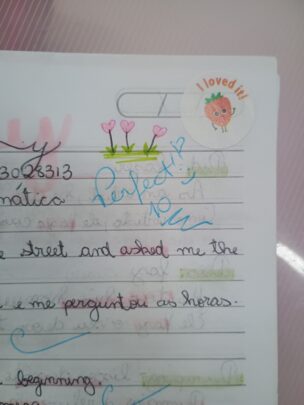 I loved it!
y
3028313
mática
Perfect!!
10
e street and asked me the
e me perguntou as horas.
beginning.